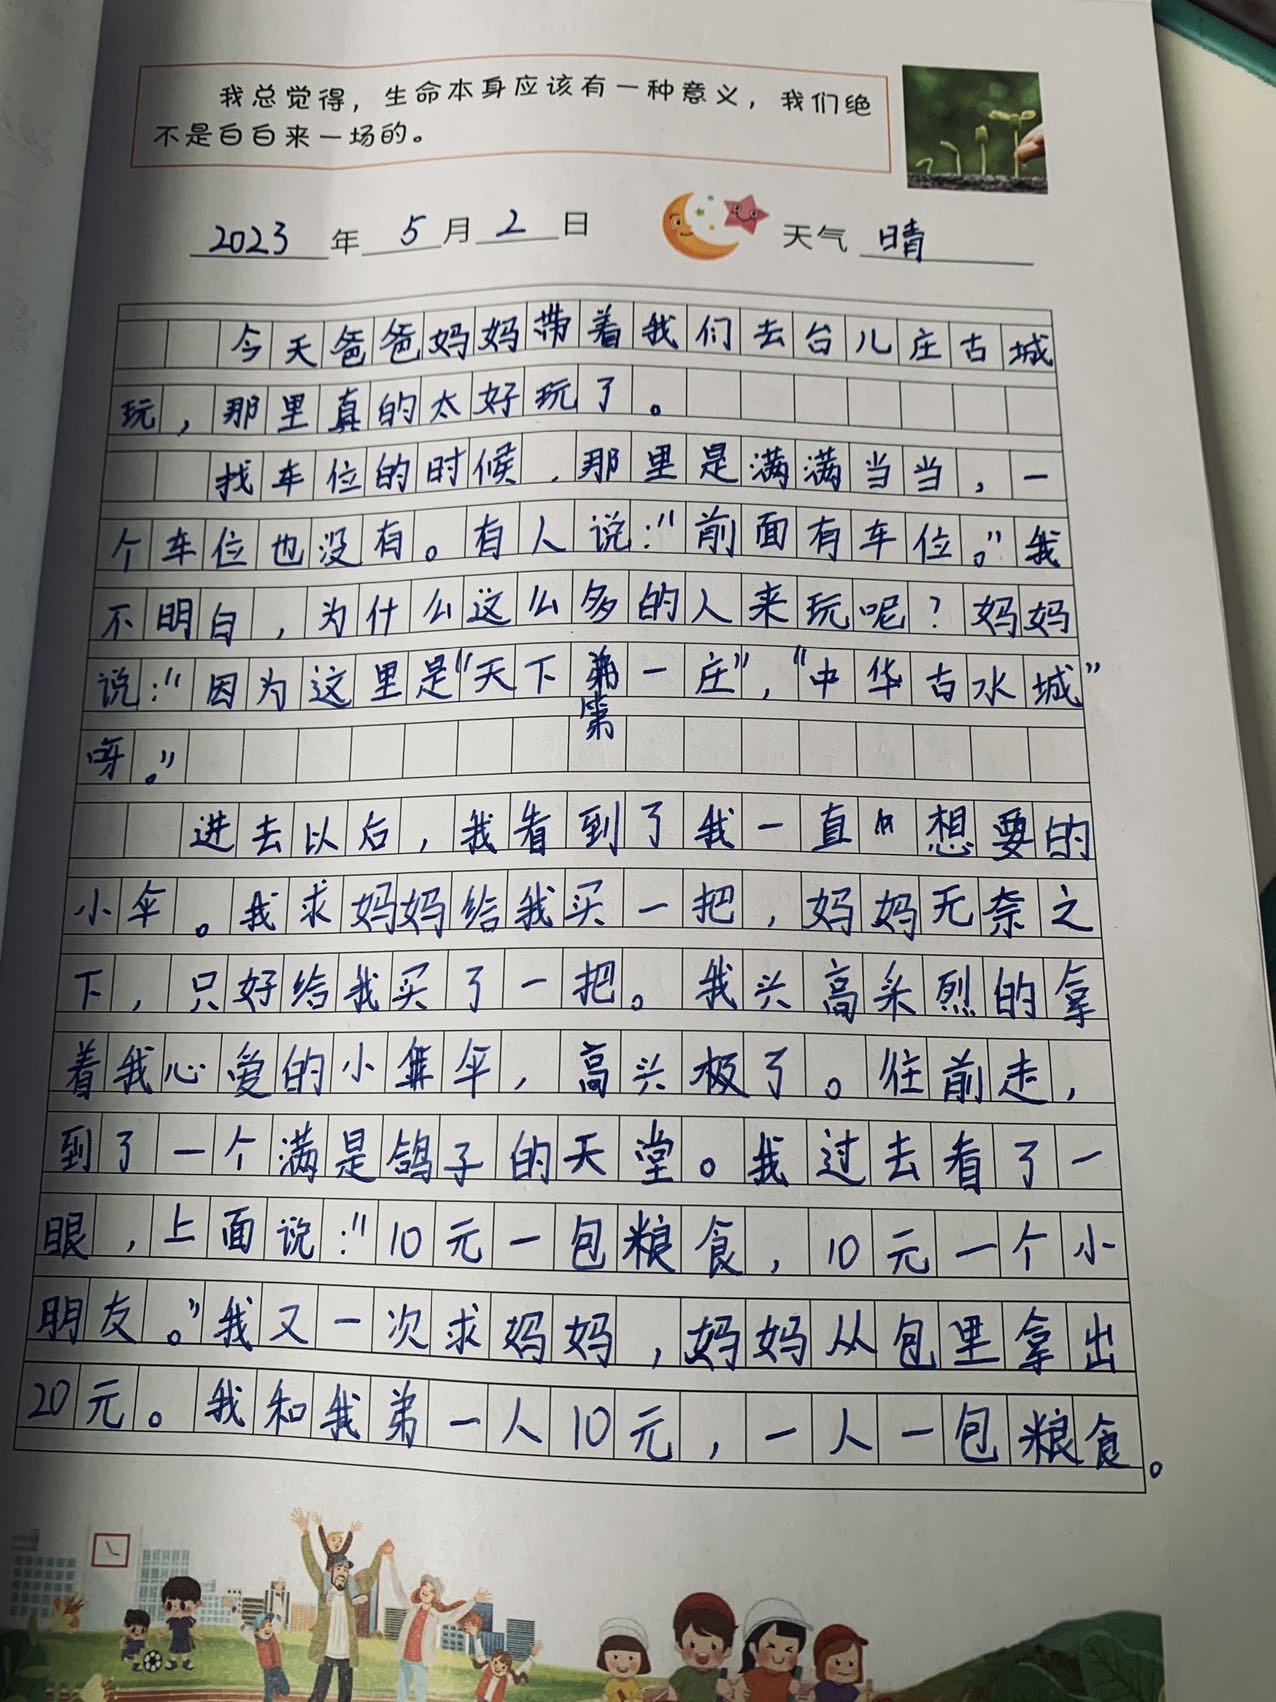 我总觉得，生命本身应该有一种意义，我们绝
不是白白来一场的。
2023年5月2日 天气 晴
今天爸爸妈妈带着我们去台儿庄古城
玩，那里真的太好玩了。
找车位的时候，那里是满满当当，一
个车位也没有。有人说："前面有车位。"我
不明白，为什么这么多的人来玩呢？妈妈
说："因为这里是"天下第一庄"，"中华古水城"
呀。"
进去以后，我看到了我一直想要的
小伞。我求妈妈给我买一把，妈妈无奈之
下，只好给我买了一把。我兴高采烈的拿
着我心爱的小伞，高兴极了。往前走，
到了一个满是鸽子的天堂。我过去看了一
眼，上面说："10元一包粮食，10元一个小
朋友。"我又一次求妈妈，妈妈从包里拿出
20元。我和我弟一人10元，一人一包粮食。